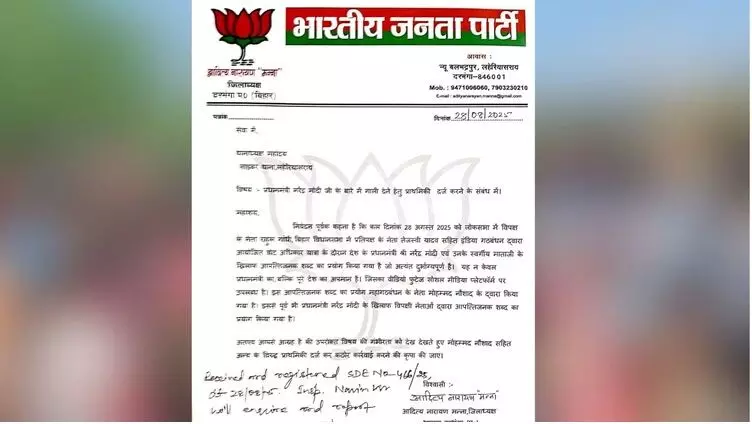 भारतीय जनता पार्टी
आदित्य नारायण "मन्ना"
जिलाध्यक्ष
दरभंगा प० (बिहार)
आवास :
न्यू बलभद्रपुर, लहेरियासराय
दरभंगा-846001
Mob. : 9471006060, 7903230210
E-mail : adityanarayan.manna@gmail.com
पत्रांक
दिनांक 28/08/2025
सेवा में,
थानाध्यक्ष महोदय
साइबर थाना,लहेरियासराय
विषय - प्रधानमंत्री नरेंद्र मोदी जी के बारे में गाली देने हेतु प्राथमिकी दर्ज करने के संबंध में।
महाशय,
निवेदन पूर्वक कहना है कि कल दिनांक 28 अगस्त 2025 को लोकसभा में विपक्ष
के नेता राहुल गांधी, बिहार विधानसभा में प्रतिपक्ष के नेता तेजस्वी यादव सहित इंडिया गठबंधन द्वारा
आयोजित वोट अधिकार यात्रा के दौरान देश के प्रधानमंत्री श्री नरेंद्र मोदी एवं उनके स्वर्गीय माताजी के
खिलाफ आपत्तिजनक शब्द का प्रयोग किया गया है जो अत्यंत दुर्भाग्यपूर्ण है। यह न केवल
प्रधानमंत्री का,बल्कि पूरे देश का अपमान है। जिसका वीडियो फुटेज सोशल मीडिया प्लेटफॉर्म पर
उपलब्ध है। इस आपत्तिजनक शब्द का प्रयोग महागठबंधन के नेता मोहम्मद नौशाद के द्वारा किया
गया है। इससे पूर्व भी प्रधानमंत्री नरेंद्र मोदी के खिलाफ विपक्षी नेताओं द्वारा आपत्तिजनक शब्द का
प्रयोग किया गया है।
अतएव आपसे आग्रह है की उपरोक्त विषय की गंभीरता को देख देखते हुए मोहम्मद नौशाद सहित
अन्य के विरुद्ध प्राथमिकी दर्ज कर कठोर कार्रवाई करने की कृपा की जाए।
Received and registered SDE No-466/25,
28/08/25. Insp. Navin
will enquire and report
विश्वासी -
आदित्य नारायण "मन्ना"
आदित्य नारायण मन्ना,जिलाध्यक्ष